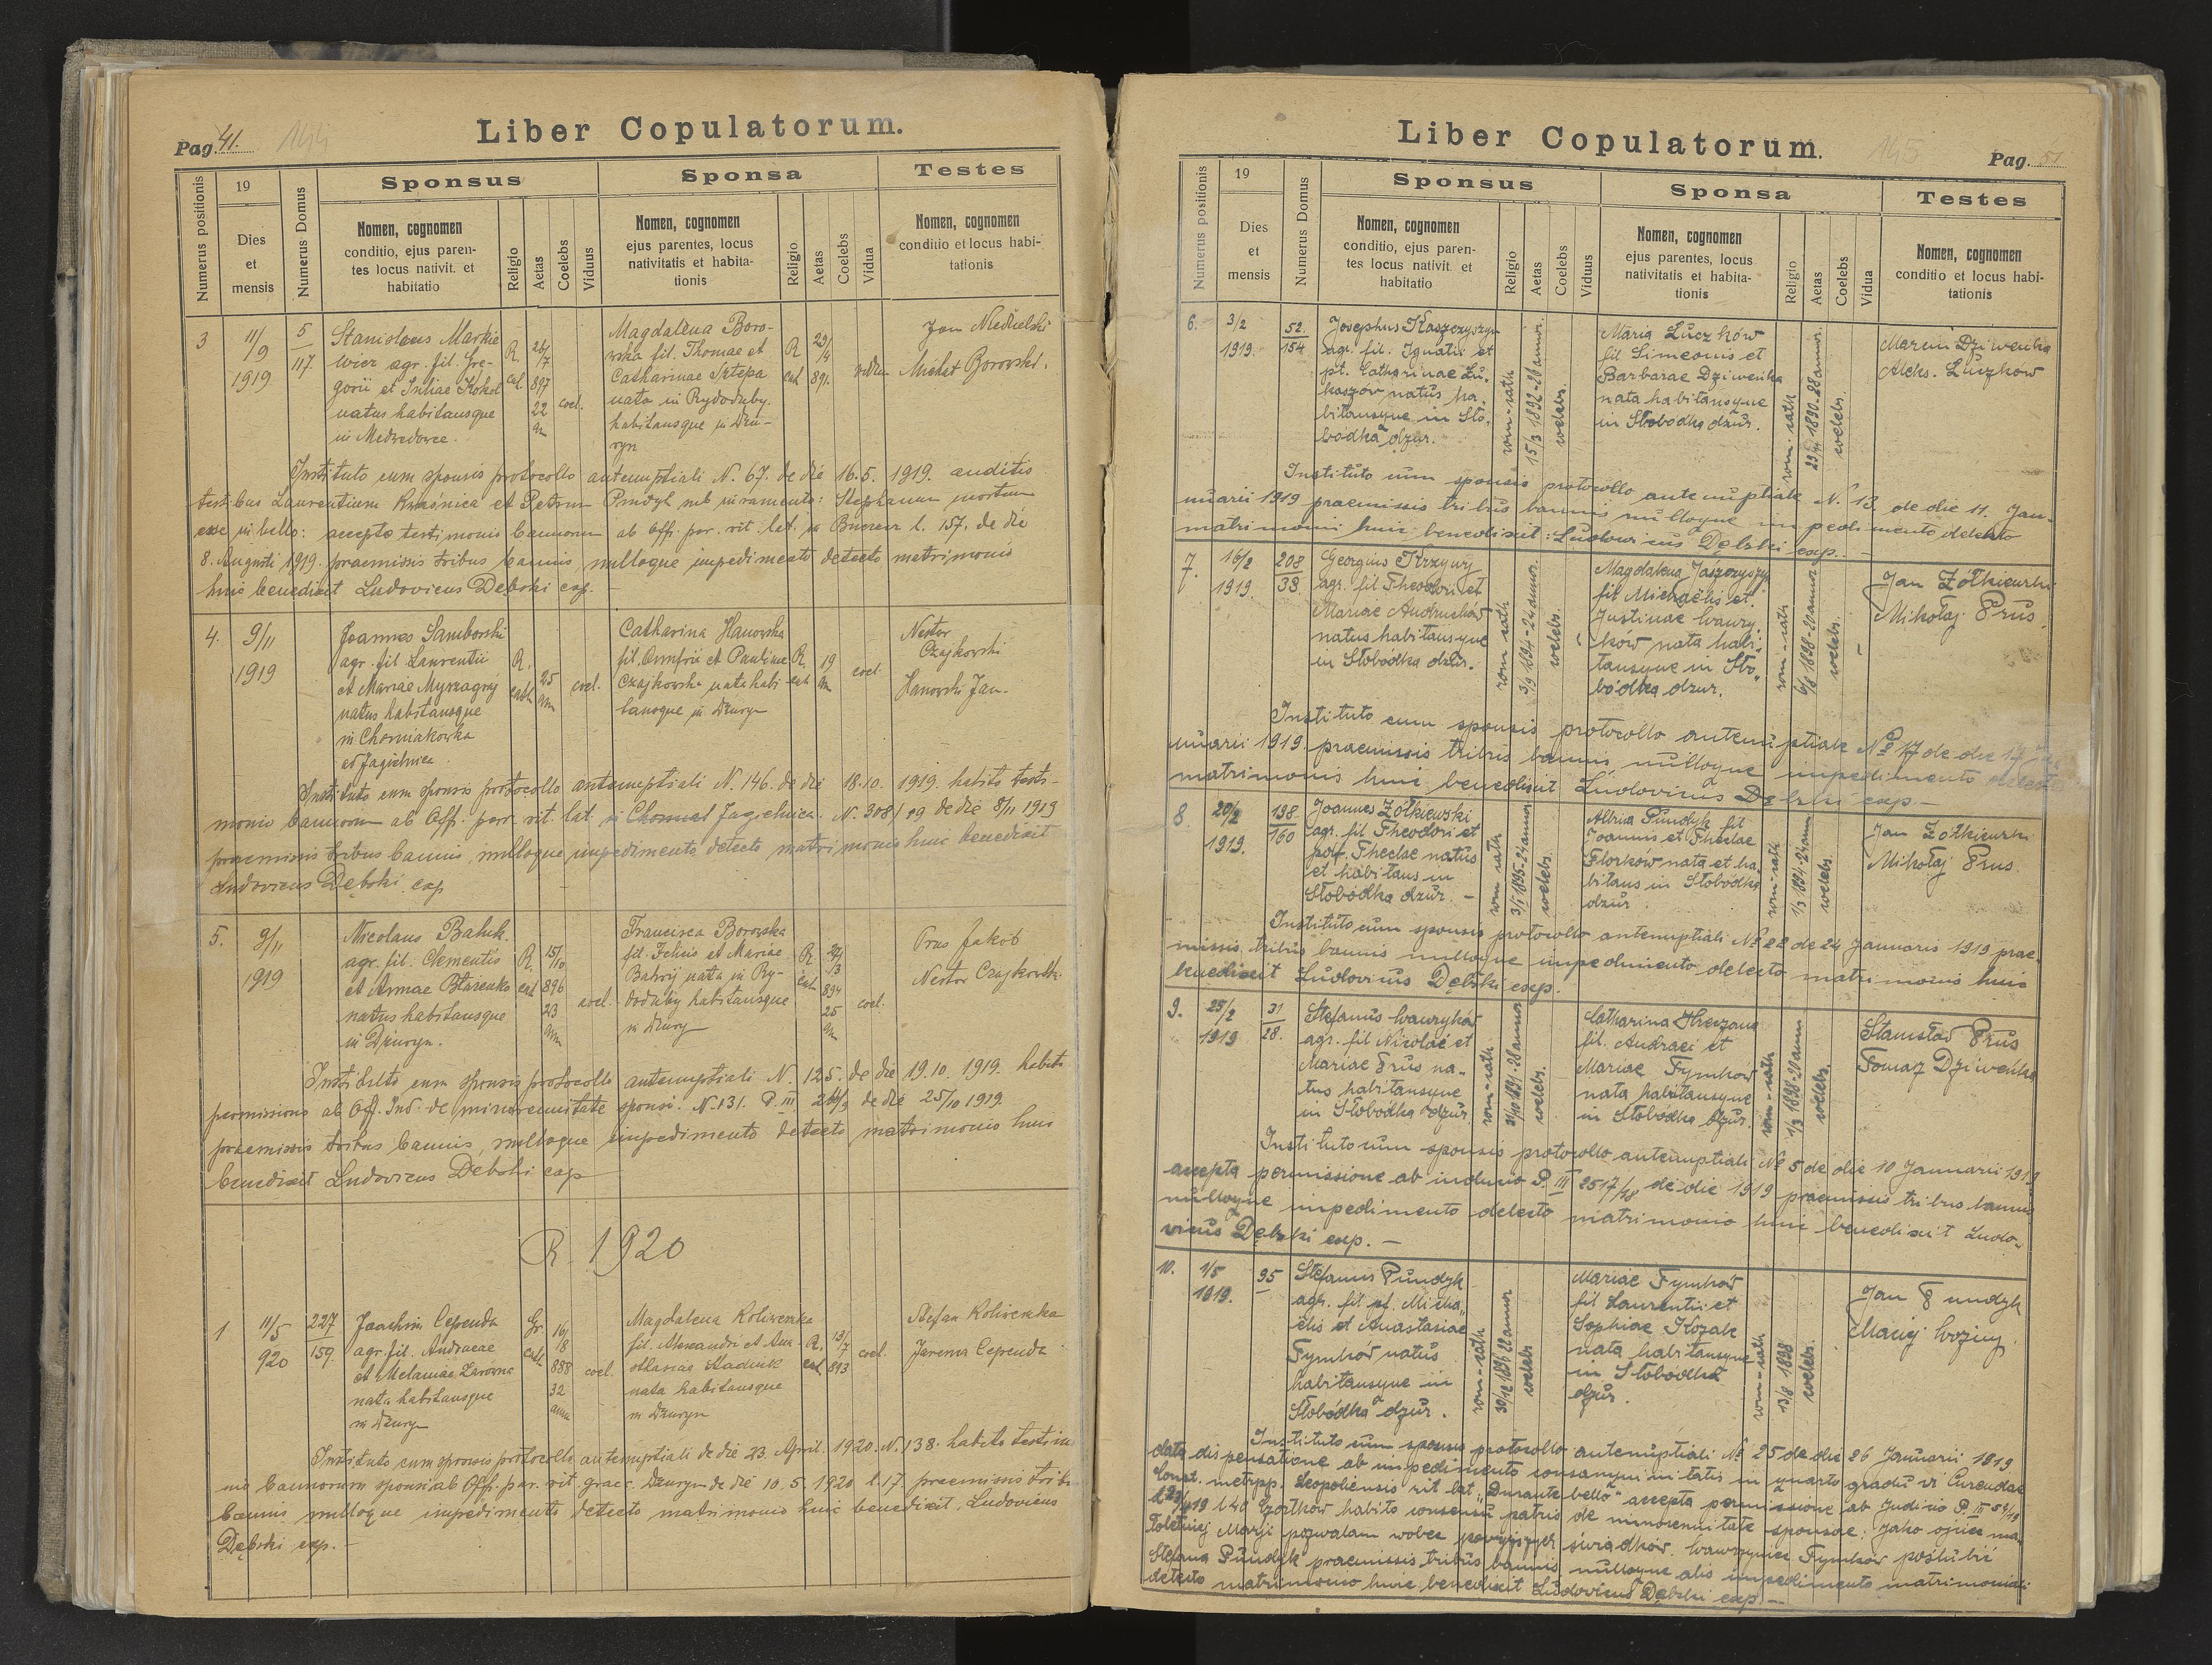 Pag. 41. 144
Liber Copulatorum.
Numerus positionis
19
Dies
et
mensis
Numerus Domus
Sponsus
Nomen, cognomen
conditio, ejus paren-
tes locus nativit. et
habitatio
Religio
Aetas
Coelebs
Viduus
Sponsa
Nomen, cognomen
ejus parentes, locus
nativitatis et habita-
tionis
Religio
Aetas
Coelebs
Vidua
Testes
Nomen, cognomen
conditio et locus habi-
tationis
3
11/9
1919
5
117
Stanislaus Markie
wicz agr. fil. Gre-
gorii et Juliae Kokol
natus habitansque
in Medwedowce.
R.
cat.
26/7
897
22
an
coel.
Magdalena Boro-
wska fil. Thomae et
Catharinae Sztepa
nata in Rydoduby
habitansque in Dżu-
ryn
R
cat
29/4
891.
vidua
Jan Niedzielski
Michał Borowski.
Instituto cum sponsis protocollo antenuptiali N. 67. de die 16.5. 1919. auditis
testibus Laurentium Kraśnica et Petrum Pundyk sub iuramento: Stephanum mortuum
esse in bello: accepto testimonio bannorum ab Offi. par. rit. lat. in l. 157. de die
8. Augusti 1919. praemissis tribus bannis, nulloque impedimento detecto matrimonio
huic benedixit Ludovicus Dębski exp.
4.
9/11
1919
Joannes Samborski
agr. fil Laurentii
et Mariae
natus habitansque
in Chomiakówka
ad Jagielnica
R.
cath
25
ann
coel.
Catharina Hanowska
fil. Onufrii et Paulinae
Czajkowska nata habi-
tansque in Dżuryn
R.
cat
19
an
coel
Nestor
Czajkowski
Hanowski Jan.
Instituto cum sponsis protocollo antenuptiali N. 146. de die 18.10. 1919. habito testi-
monio bannorum ab Off. par. rit. lat. in Jagielnica. N. 308/19 de die 8/11 1919
praemissis tribus bannis, nulloque impedimento detecto matrimonio huic benedixit
Ludovicus Dębski exp
5.
9/11
1919
Nicolaus Bahik.
agr. fil. Clementis
et Annae Błażenko
natus habitansque
in Dżuryn.
R.
cat
15/10
896
23
ann
coel.
Francisca Borowska
fil. Felicis et Mariae
Bahrij nata in Ry-
doduby habitansque
in Dżuryn
R.
cat
27/3
894
25
an
coel.
Prus Jakób
Nestor Czajkowski
Instituto cum sponsis protocollo antenuptiali N. 125. de die 19.10. 1919. habita
permissione ab Off. Ind. de minorennitate sponsi. N. 131. P. III 26/9 de die 25/10 1919.
praemissis tribus bannis, nulloque impedimento detecto matrimonio huic
benedixit Ludovicus Dębski exp
R. 1920
1
11/5
920
227
159.
Joachim Cependa
agr. fil. Andraeae
et Melaniae Zarówna
nata habitansque
in Dżuryn
Gr
cath
16/8
888
32
ann
coel.
Magdalena Koliweszka
fil. Alexandri et Ana-
sthasiae Stadnik
nata habitansque
in Dżuryn
R.
cat
13/7
893
coel.
Stefan Koliweszka
Jarema Cependa
Instituto cum sponsis protocollo antenuptiali de die 23. April. 1920. N. 138. habito testimo
nio bannorum sponsi ab Off. par. rit. graec. Dżuryn de die 10. 5. 1920 l. 17. praemissis tribu
bannis nulloque impedimento detecto matrimonio huic benedixit. Ludovicus
Dębski exp. -
Liber Copulatorum.
145
Pag. 51
Numerus positionis
19
Dies
et
mensis
Numerus Domus
Sponsus
Nomen, cognomen
conditio, ejus paren-
tes locus nativit. et
habitatio
Religio
Aetas
Coelebs
Viduus
Sponsa
Nomen, cognomen
ejus parentes, locus
nativitatis et habita-
tionis
Religio
Aetas
Coelebs
Vidua
Testes
Nomen, cognomen
conditio et locus habi-
tationis
6.
3/2
1919.
52.
154
Josephus Kaszczyszyn
agr. fil. Ignatii et
pt. Catharinae Łu-
kaszów natus ha-
bitansque in Sło-
bódka dżur.
rom-cath
15/3 1892-26 annor.
coelebs.
Maria Łuczków
fil Simeonis et
Barbarae Dziweńka
nata habitansque
in Słobódka dżur.
rom-cath
1890-28 annor.
coelebs.
Marcin Dziweńka
Aleks. Łuczkow
Instituto cum sponsis protocollo antenuptiale N. 13. de die 11. Jan-
nuarii 1919 praemissis tribus bannis nulloque impedimento detecto
matrimonii huic benedixit: Ludowicus Dębski exp. -
7.
16/2
1919.
208
33.
Georgius Krzywy
agr. fil Theodori et
Mariae Andruchów
natus habitansque
in Słobódka dżur.
rom cath
3/9 1894-24 annor.
coelebs.
Magdalena Jaszczyszyn
fil Michaëlis et
Justinae Wawry-
ków nata habi-
tansque in Sło-
bódka dżur.
rom-cath
6/8 1898-20 annor
coelebs.
Jan Żółkiewski
Mikołaj Prus.
Instituto cum sponsis protocollo antenuptiale Nº 17 de die 17
nuarii 1919 praemissis tribus bannis, nulloque impedimento detecto
matrimonio huic benedixit Ludovicus Dębski exp -
8
20/2
1919.
198
160
Joannes Żółkiewski
agr. fil Theodori et
Theclae natus
et habitans in
Słobódka dżur. -
rom cath
3/1 1895-24 annor
coelebs.
Altria Pundyk fil
Joannis et Theclae
Florków nata et ha-
bitans in Słobódka
dżur
rom-cath
1/3 1894-24 ann
coelebs.
Jan Żółkiewski
Mikołaj Prus.
Instituto cum sponsis protocollo antenuptiali Nº 22 de 24 Januaris 1919 prae-
missis tribus bannis nulloque impedimento detecto matrimonio huic
benedixit Ludovicus Dębski exp.
9.
25/2
1919
31
28.
Stefanus Wawryków
agr. fil Nicolai et
Mariae Prus na-
tus habitansque
in Słobódka dżur
rom-cath
1891-28 annor
coelebs.
Catharina
fil. Andraei et
Mariae Tymków
nata habitansque
in Słobódka dżur.
rom-cath
1/3 1898-20 ann
coelebs.
Stanisław Prus
Tomasz Dziweńka
Instituto cum sponsis protocollo antenuptiali Nº 5 de die 10 Januarii 1919
accepta permissione ab iudicio P. III 2517/18 de die 1919 praemissis tribus bannis
nulloque impedimento detecto matrimonio huic benedixit Ludo-
vicus Dębski exp. -
10.
1/5
1919.
95
Stefanus Pundyk
agr. fil pt. Micha-
ëlis et Anastasiae
Tymków natus
habitansque in
Słobódka dżur.
rom-cath
30/12 1896 22 annor
coelebs
Mariae Tymków
fil Laurentii et
Sophiae Kozak
nata habitansque
in Słobódka
dżur.
rom-cath
13/8 1898
coelebs.
Jan Pundyk
Maciej Woźny.
Instituto cum sponsis protocollo antenuptiali Nº 25 de die 26 Januarii 1919
data dispensatione ab impedimento consanguinitatis in quarto gradu vi Curendae
Const. metrpp. Leopoliensis rit lat. "Durante bello" accepta permissione ab Judicio P. III
l. 40 Czortków habito consensu patris de minorennitate sponsae: Jako ojciec ma-
łoletniej Maryi pozwalam wobec powyższych świadków. Wawrzyniec Tymków poślubić
Stefana Pundyk praemissis tribus bannis nulloque alio impedimento matrimoniali
detecto matrimonio huic benedixit Ludovicus Dębski exp -